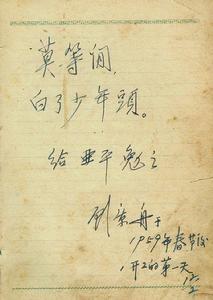 莫等闲,
白了少年頭。
给亚平勉之
刘景舟于
1959年春节后
开工的第一天